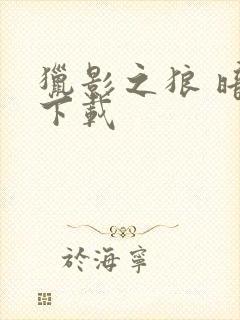 獵影之狼 暗
下載
於海寧